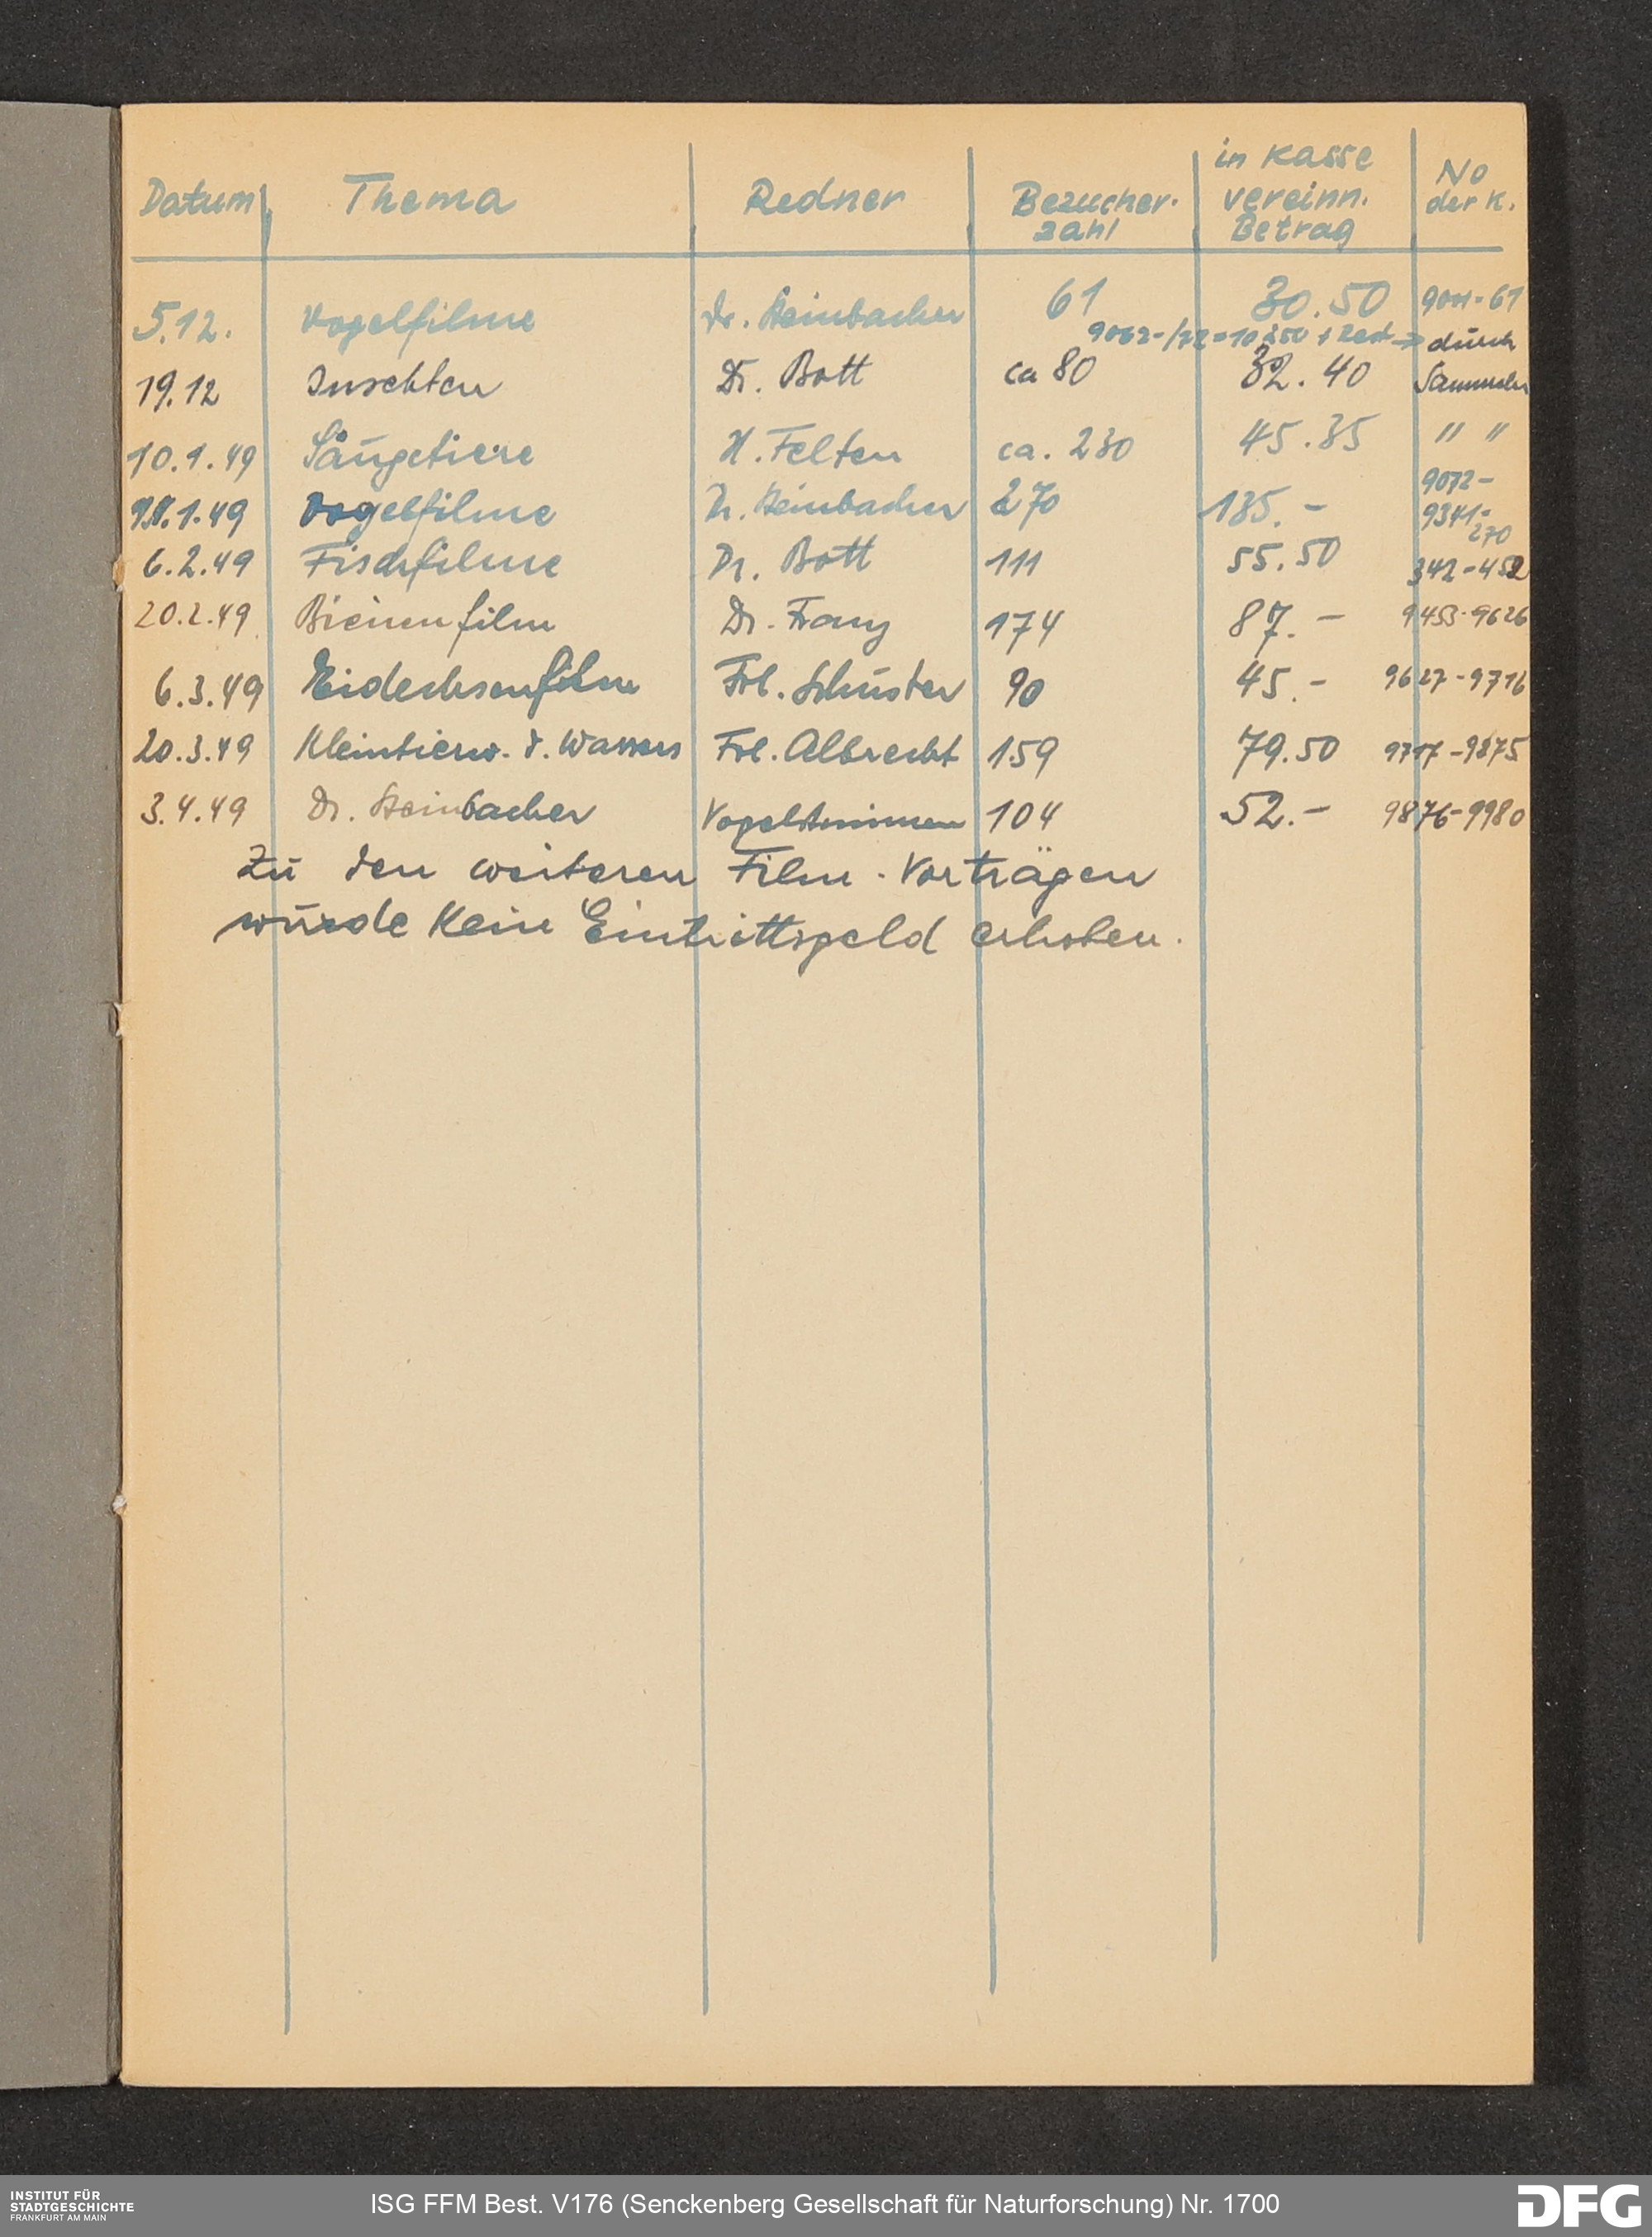 Datum Thema Redner Besucher-zahl in Kasse vereinn. Betrag No der K.
5.12. Vogelfilme Dr. Steinbacher 61 30.50 9001-61
9062-/72=10 à 50 + Rest → durch
19.12 Insekten Dr. Bott ca 80 32.40 Sammeln
10.1.49 Säugetiere H. Felten ca. 230 45.35 " "
1.49 Vogelfilme Dr. Steinbacher 270 135.- 9072-9341=270
6.2.49 Fischfilme Dr. Bott 111 55.50 342-452
20.2.49 Bienenfilm Dr. Franz 174 87.- 9453-9626
6.3.49 Eidechsenfilm Frl. Schuster 90 45.- 9627-9716
20.3.49 Kleintierw. d. Wassers Frl. Albrecht 159 79.50 9717-9875
3.4.49 Dr. Steinbacher Vogelstimmen 104 52.- 9876-9980
Zu den weiteren Film-Vorträgen
wurde kein Eintrittsgeld erhoben.
INSTITUT FÜR
STADTGESCHICHTE
FRANKFURT AM MAIN
ISG FFM Best. V176 (Senckenberg Gesellschaft für Naturforschung) Nr. 1700
DFG